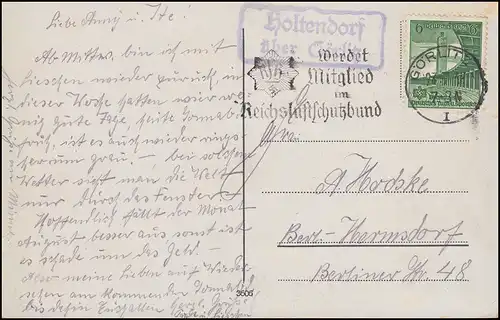 Liebe Anny u. Ite!
Ab Mittw. bin ich mit
Lieschen wieder zurück, in
dieser Woche hatten wir we-
nig gute Tage, heute Sonnab.
früh, ist es auch wieder rings-
herum grau. — bei solchem
Wetter sieht man die Welt
nur durch das Fenster.
Hoffentlich fällt der Monat
August besser aus sonst ist
es schade um das Geld. —
Also meine Lieben auf Wieder-
sehen am kommenden Sonnab.
bis dahin
Holtendorf
über Görlitz
Werdet
Mitglied
im
Reichsluftschutzbund
GÖRLITZ
1
6
A. Hodske
Berl.-Hermsdorf
Berliner Str. 48
3606